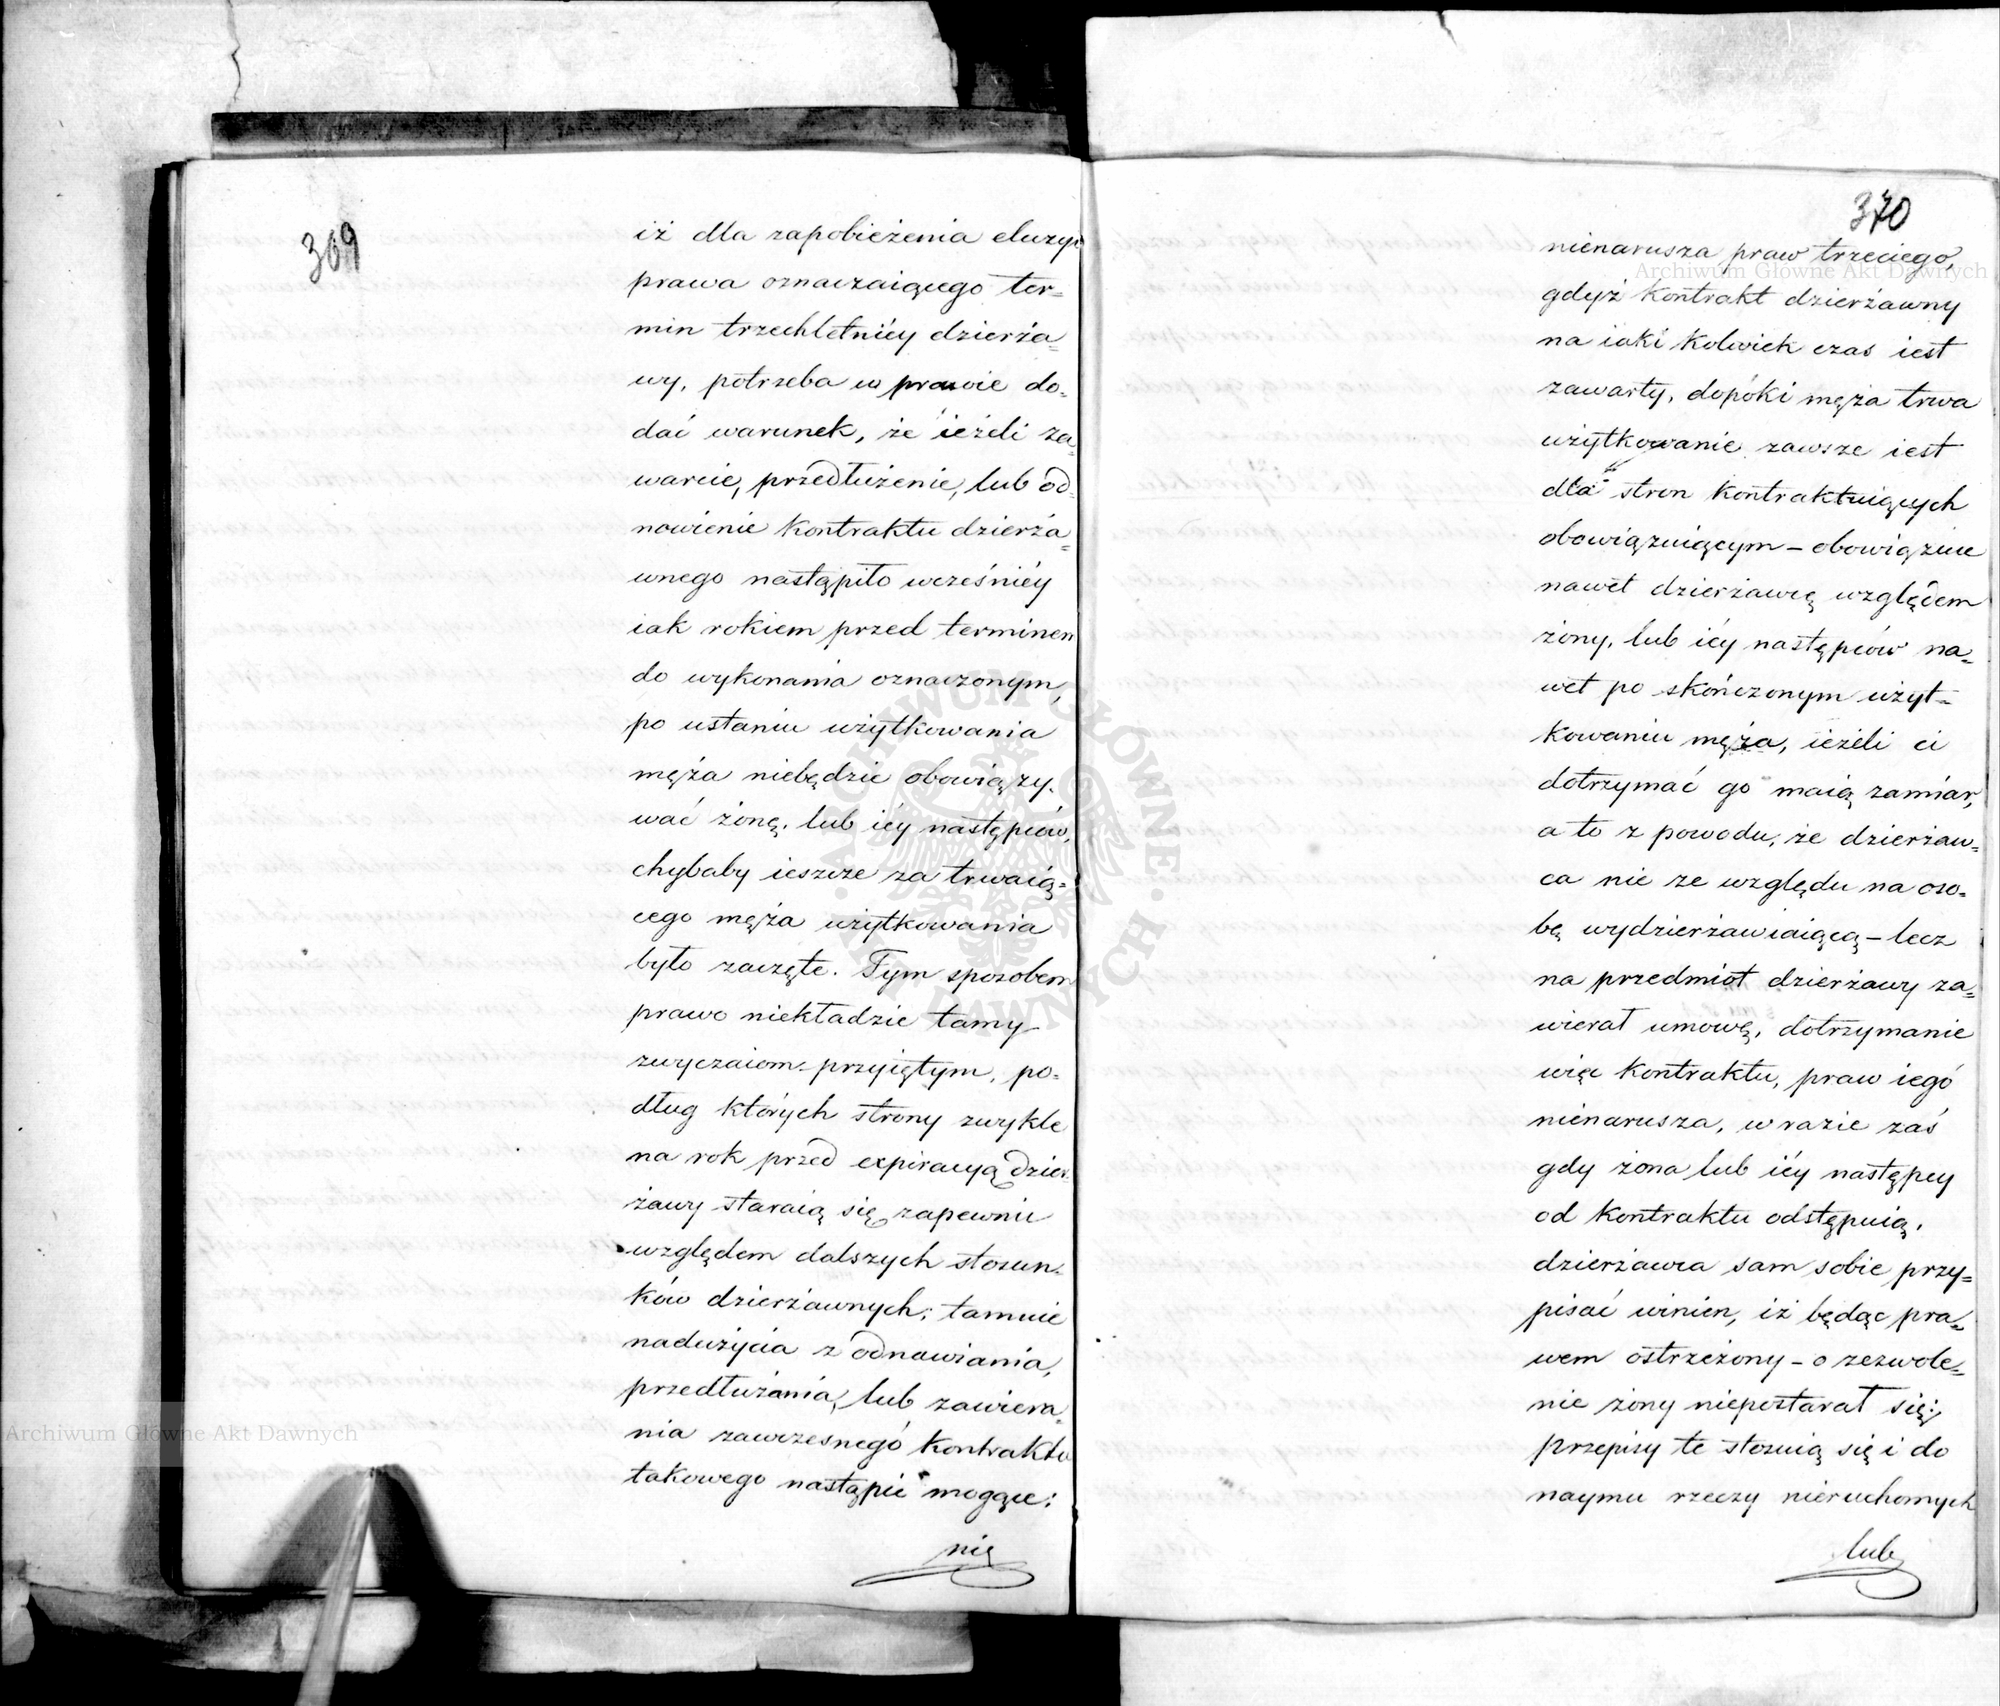 369
iż dla zapobieżenia eluzyi
prawa oznaczaiącego ter=
min trzechletniéy dzierża=
wy, potrzeba w prawie do=
dać warunek, że ieżeli za=
warcie, przedłużenie, lub od=
nowienie kontraktu dzierża=
wnego nastąpiło wcześniéy
iak rokiem przed terminem
do wykonania oznaczonym,
po ustaniu użytkowania
męża niebędzie obowiązy=
wać żonę, lub iéy następców,
chybaby ieszcze za trwaią=
cego męża użytkowania
było zaczęte. Tym sposobem
prawo niekładzie tamy
zwyczaiom przyiętym, po=
dług których strony zwykle
na rok przed expiracyą dzier=
żawy staraią się zapewnić
względem dalszych stosun=
ków dzierżawnych; tamuie
nadużycia z odnawiania,
przedłużania, lub zawiera=
nia zawczesnego kontraktu
takowego nastąpić mogące;
nie
370
nienarusza praw trzeciego,
gdyż kontrakt dzierżawny
na iaki kolwiek czas iest
zawarty, dopóki męża trwa
użytkowanie zawsze iest
dla stron kontraktuiących
obowiązuiącym – obowiązuie
nawet dzierżawcę względem
żony, lub iéy następców na=
wet po skończonym użyt=
kowaniu męża, ieżeli ci
dotrzymać go maią zamiar,
a to z powodu, że dzierżaw=
ca nie ze względu na oso=
bę wydzierżawiaiącą – lecz
na przedmiot dzierżawy za=
wierał umowę, dotrzymanie
więc kontraktu, praw iego
nienarusza, w razie zaś
gdy żona lub iéy następcy
od kontraktu odstępuią,
dzierżawca sam sobie przy=
pisać winien, iż będąc pra=
wem ostrzeżony – o zezwole=
nie żony niepostarał się;
przepisy te stosuią się i do
naymu rzeczy nieruchomych
lub
Archiwum Główne Akt Dawnych
Archiwum Główne Akt Dawnych
ARCHIWUM GŁÓWNE AKT DAWNYCH